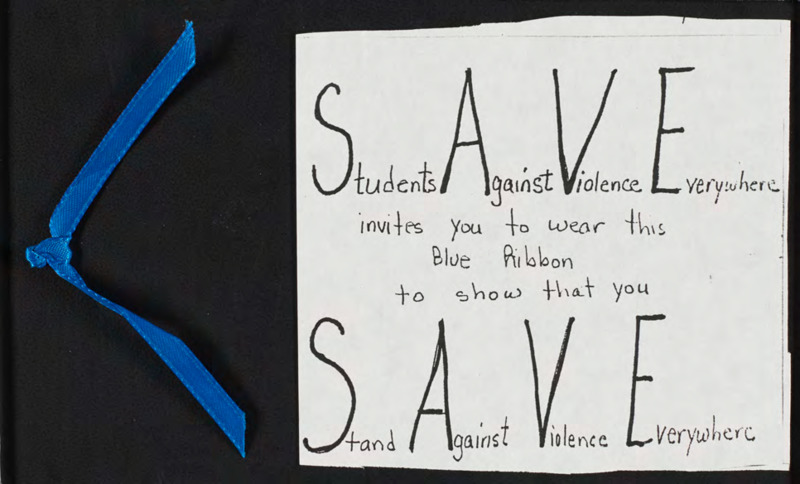 Students Against Violence Everywhere
invites you to wear this
Blue Ribbon
to show that you
Stand Against Violence Everywhere